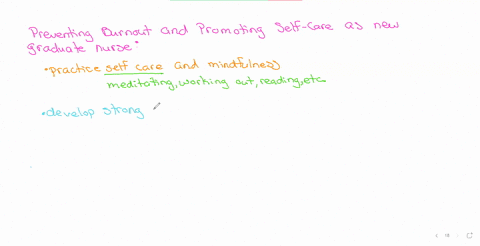 Preventing Burnout and Promoting Self-Care as new
graduate nurse:
•practice self care and mindfulness
meditating, working out, reading, etc.
•develop strong